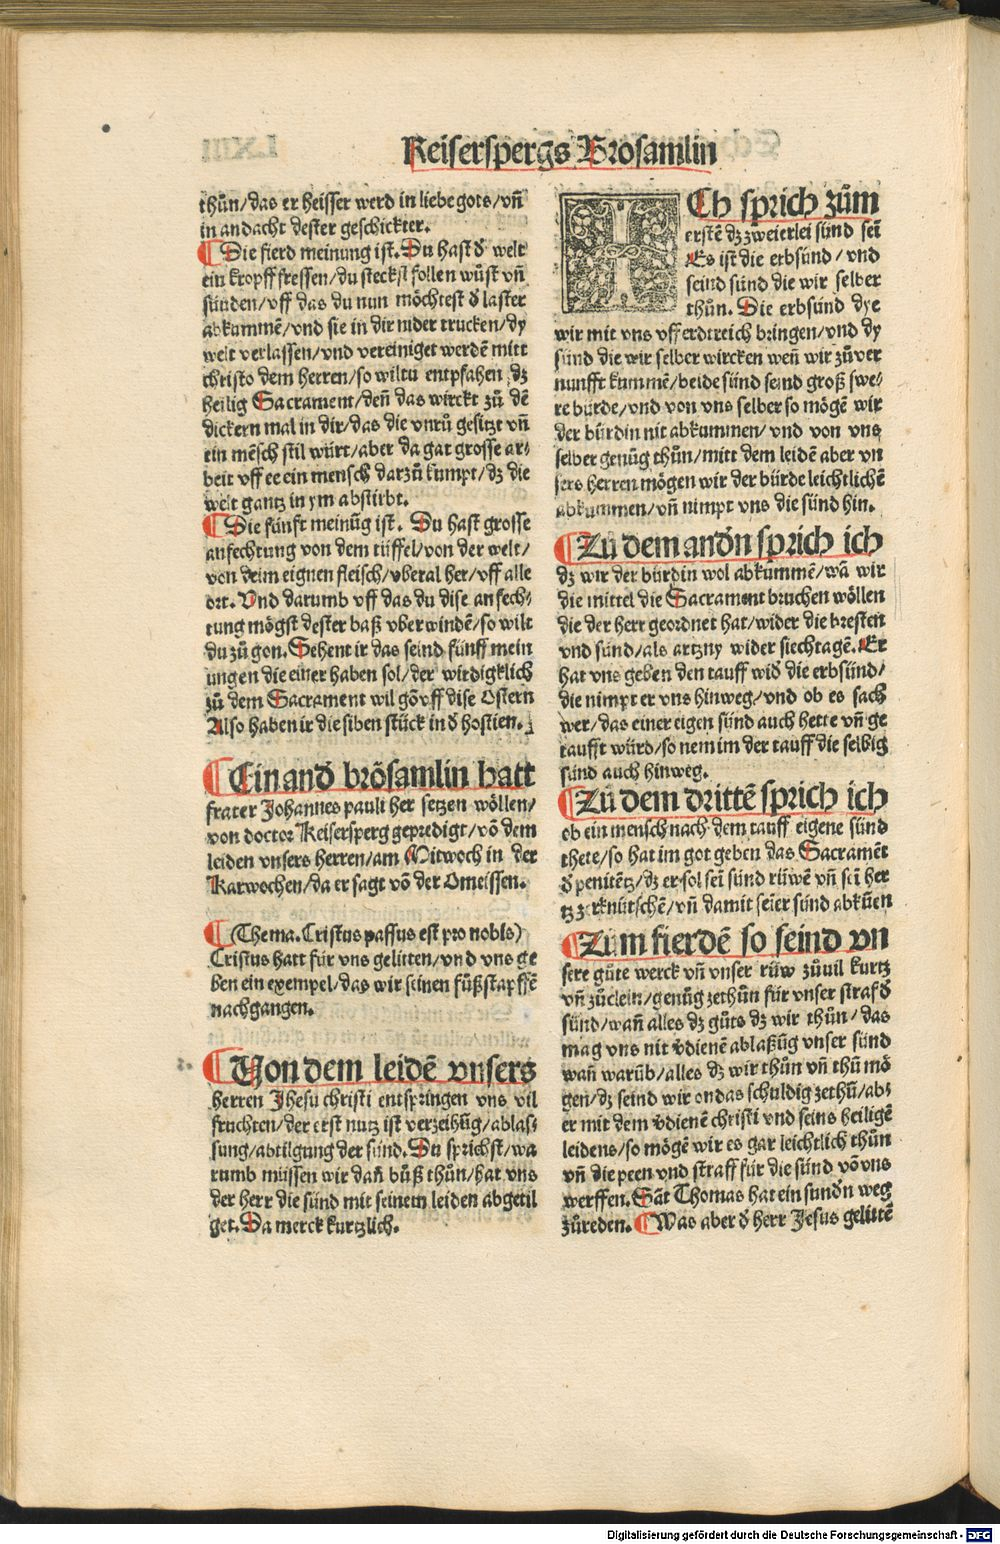 Keiserspergs Brosamlin
thůn/das er heisser werd in liebe gots/vñ
in andacht dester geschickter.
¶ Die fierd meinung ist. Du hast d̄ welt
ein kropff fressen/du steckst follen wůst vñ
sünden/vff das du nun möchtest d̄ laster
abkummē/vnd sie in dir nider trucken/dy
welt verlassen/vnd vereiniget werdē mitt
christo dem herren/so wiltu entpfahen dz
heilig Sacrament/deñ das wirckt zů dē
dickern mal in dir/das die vnrů gesitzt vñ
ein mēsch stil würt/aber da gat grosse ar⸗
beit vff ee ein mensch darzů kumpt/dz die
welt gantz in ym abstirbt.
¶ Die fünfft meinūg ist. Du hast grosse
anfechtung von dem tüffel/von der welt/
von deim eignen fleisch/vberal her/vff alle
ort. Vnd darumb vff das du dise anfech⸗
tung mögst dester baß vberwindē/so wilt
du zů gon. Sehent ir das seind fünff mein
ungen die einer haben sol/der wirdigklich
zů dem Sacrament wil gō vff dise Ostern
Also haben ir die siben stück in d̄ hostien.
¶ Ein and̄ brösamlin hatt
frater Johannes pauli her setzen wöllen/
von doctor Keisersperg geprediget/vō dem
leiden vnsers herren/am Mitwoch in der
Karwochen/da er sagt vō der Omeissen.
¶ (Thema. Cristus passus est pro nobis)
Cristus hatt für vns gelitten/vnd vns ge
ben ein exempel/das wir seinen fůßstapffē
nachgangen.
¶ Von dem leidē vnsers
herren Jhesu christi entspringen vns vil
fruchten/der erst nutz ist verzeihūg/ablas⸗
sung/abtilgung der sünd. Du sprichst/wa
rumb müssen wir dañ bůß thůn/hat vns
der herr die sünd mit seinem leiden abgetil
get. Da merck kurtzlich.
ICh sprich zům
erstē dz zweierlei sünd sei
Es ist die erbsünd/vnd
seind sünd die wir selber
thůn. Die erbsünd dye
wir mit vns vff erdtreich bringen/vnd dy
sünd die wir selber wircken weñ wir zů ver
nunfft kummē/beide sünd seind groß swe⸗
re bürde/vnd von vns selber so mögē wir
der bürdin nit abkummen/vnd von vns
selber genůg thůn/mitt dem leidē aber vn
sers herren mögen wir der bürde leichtlichē
abkummen/vñ nimpt vns die sünd hin.
¶ Zů dem and̄n sprich ich
dz wir der bürdin wol abkummē/wā wir
die mittel die Sacrament bruchen wöllen
die der herr geordnet hat/wider die bresten
vnd sünd/als artzny wider siechtagē. Er
hat vns geben den tauff wid̄ die erbsünd/
die nimpt er vns hinweg/vnd ob es sach
wer/das einer eigen sünd auch hette vñ ge
taufft würd/so nem im der tauff die selbig
sünd auch hinweg.
¶ Zů dem drittē sprich ich
ob ein mensch nach dem tauff eigene sünd
thete/so hat im got geben das Sacramēt
d̄ penitētz/dz er sol sei sünd rüwē vñ sei her
tz zerknütschē/vñ damit seier sünd abkūen
¶ Zum fierdē so seind vn
sere gůte werck vñ vnser rüw zůuil kurtz
vñ zů clein/genůg zethůn für vnser straf d̄
sünd/wañ alles dz gůts dz wir thůn/das
mag vns nit v̄dienē ablaßūg vnser sünd
wañ warūb/alles dz wir thůn vñ thů mö
gen/dz seind wir on das schuldig zethů/ab⸗
er mit dem v̄dienē christi vnd seins heiligē
leidens/so mögē wir es gar leichtlich thůn
vñ die peen vnd straff für die sünd vō vns
werffen. Sāt Thomas hat ein sund̄n weg
zů reden. ¶ Was aber d̄ herr Jesus gelittē
Digitalisierung gefördert durch die Deutsche Forschungsgemeinschaft - DFG